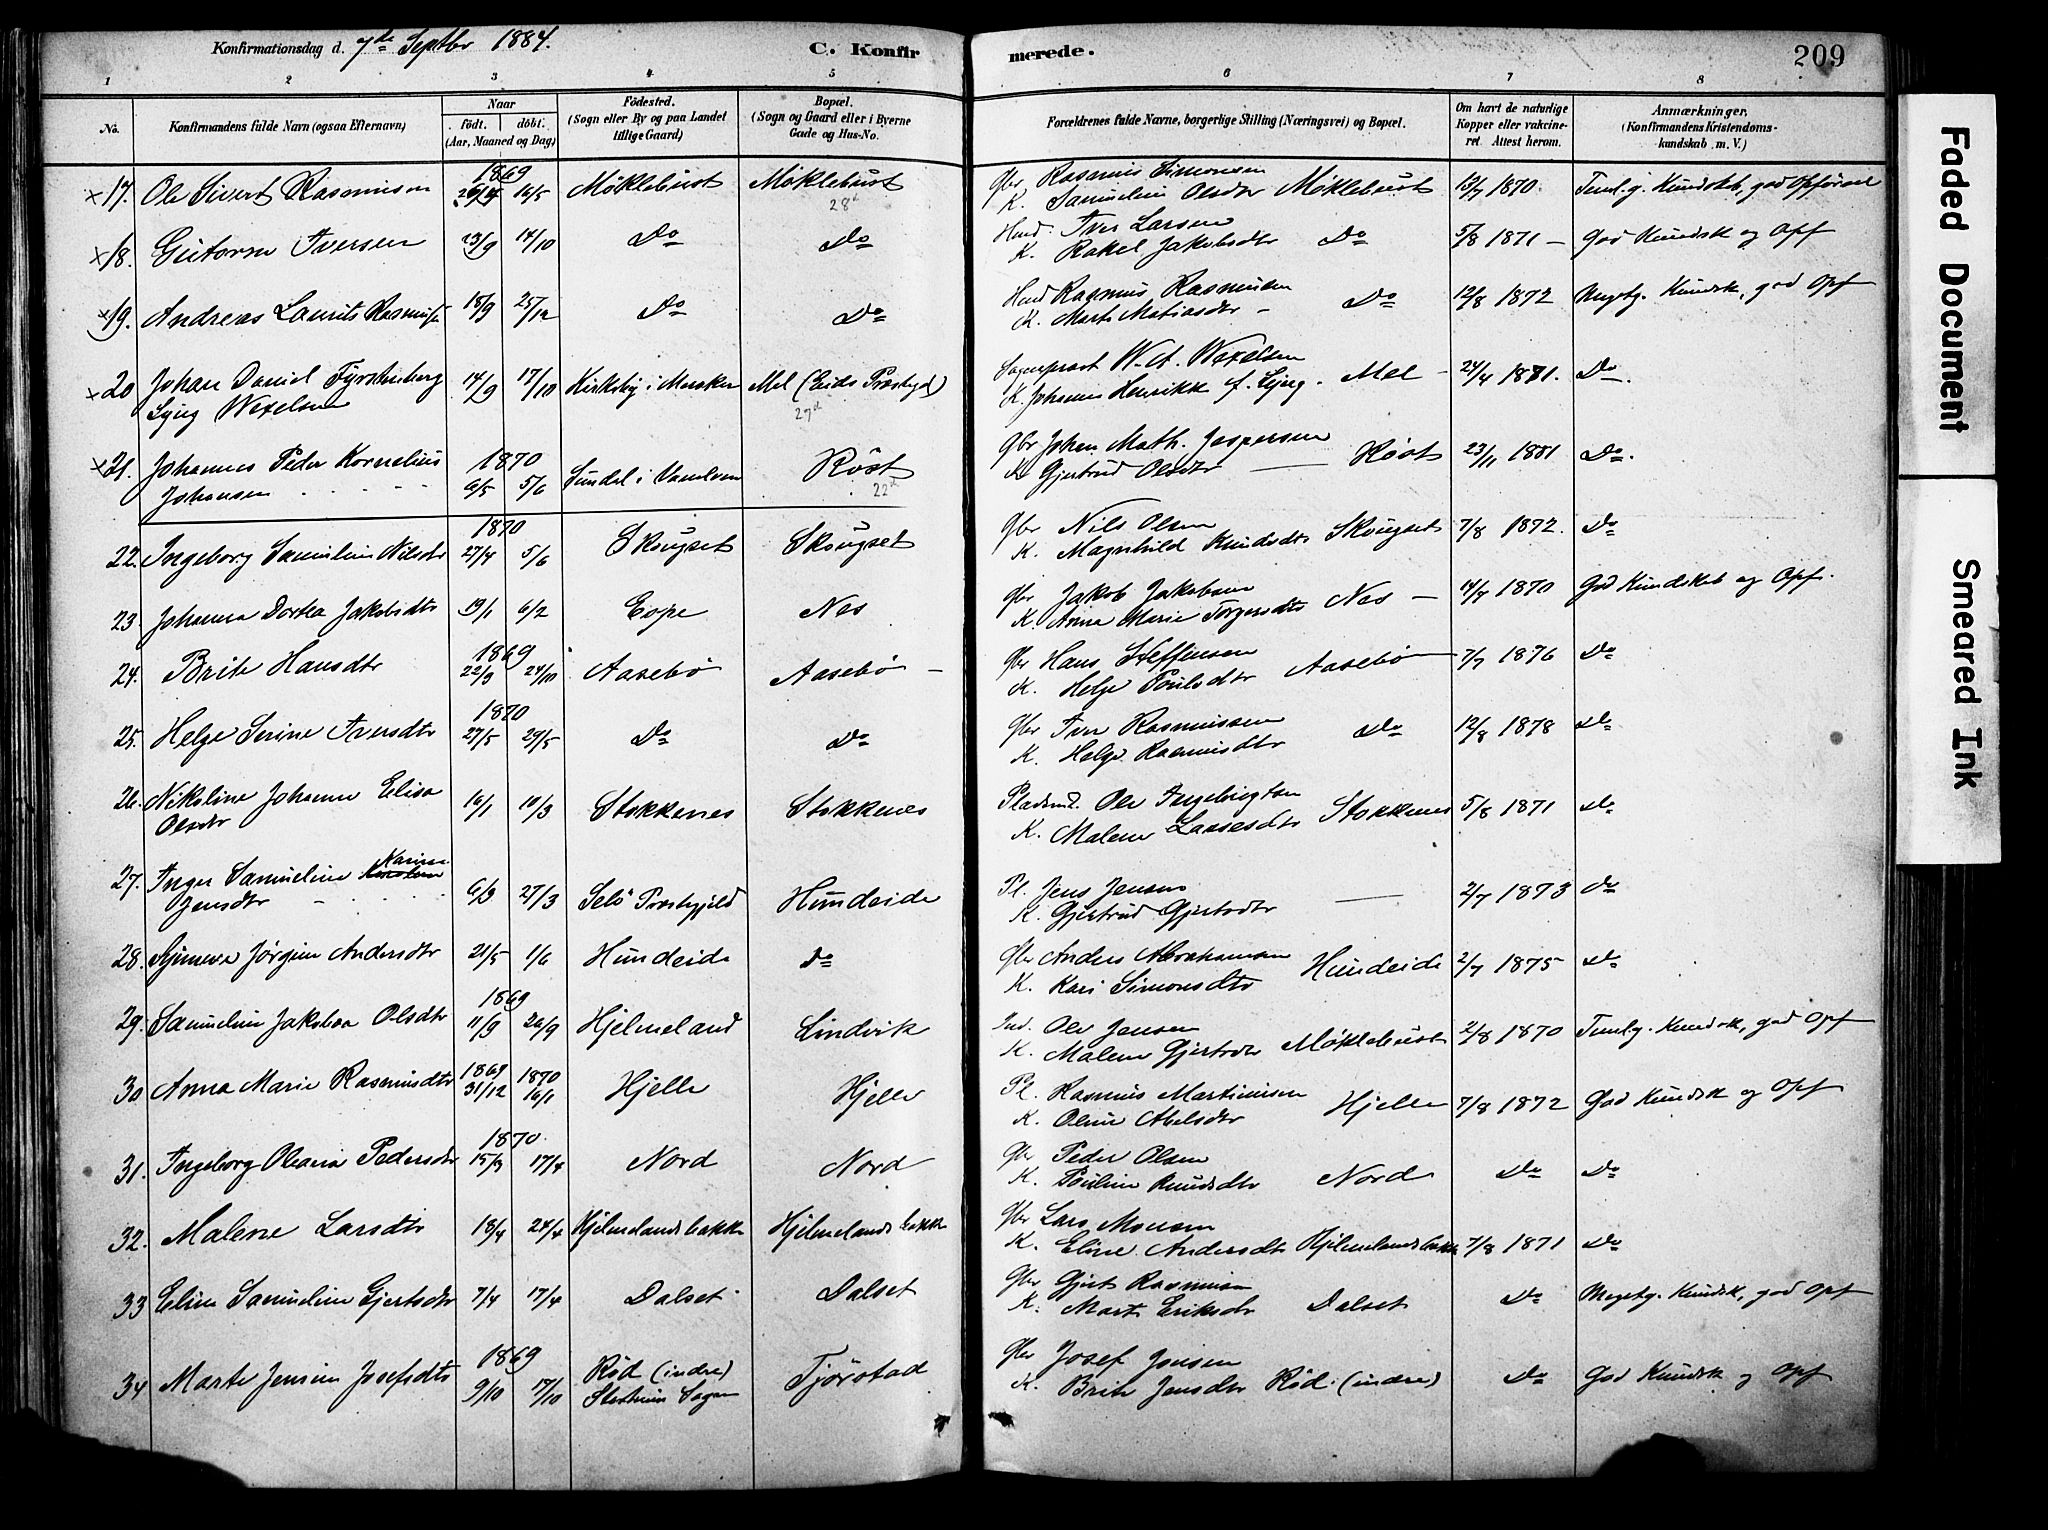 Konfirmationsdag d. 7de Septbr 1884.
C. Konfirmerede.
209
1 2 3 4 5 6 7 8
No.
Konfirmandens fulde Navn (ogsaa Efternavn)
Naar
født. døbt.
(Aar, Maaned og Dag)
Fødested.
(Sogn eller By og paa Landet
tillige Gaard)
Bopæl.
(Sogn og Gaard eller i Byerne
Gade og Hus-No.
Forældrenes fulde Navne, borgerlige Stilling (Næringsvei) og Bopæl.
Om havt de naturlige
Kopper eller vakcine-
ret. Attest herom.
Anmærkninger.
(Konfirmandens Kristendoms-
kundskab m. V.)
1869
x 17. Ole Sivert Rasmusen 16/5 Møklebust Møklebust Gbr Rasmus Simonsen
28d
K. Samueline Olsdtr Møklebust 13/7 1870 Temlg. Kundskb, god Opførsel
x 18. Gutorm Iversen 23/9 14/10 Do Do Iver Larsen
K. Rakel Jakobsdtr Do 5/8 1871 – God Kundsk og Opf
x 19. Andreas Laurits Rasmus 18/9 25/12 Do Do Rasmus Rasmusen
K. Marte Matiasdtr – Do 12/8 1872 Megetg. Kundsk, god Opf
x 20 Johan Daniel Fyrstenberg 14/9 17/10 Mel (Eids Prstgjd) Sogneprest W. A. Wexelsen
27d
Ljug Wexelsen K. Johanne Henrikk f. Ljug. Mel – 24/4 1881. Do.
x 21. Johannes Peder Kornelius 1870 Røst Gbr Johan Math. Jaspersen
Johansen 6/5 5/6 22d K Gjertrud Olsdtr Røst 23/11 1881 Do.
1870
22. Ingeborg Samueline Nilsdtr 27/4 5/6 Skougset Skougset Gbr Nils Olsen
K. Magnhild Knudsdtr Skougset 7/8 1872. Do
23. Johanna Dortea Jakobsdtr 19/1 6/2 Nes Gbr Jakob Jakobsen
K. Anna Marie Torgersdtr Nes – 1870 God Kundskab og Opf.
1869
24. Brite Hansdtr 22/9 24/10 Aasebø Aasebø – Gbr Hans Steffensen
K. Helge Poulsdtr Aasebø 7/7 1876 Do
1870
25. Helge Serine Iversdtr 27/5 29/5 Do Do Gbr Iver Rasmussen
K. Helge Rasmusdtr Do 12/8 1878 Do
26. Nikoline Johanne Elisa 16/1 10/3 Stokkenes Stokkenes Pladsmd. Ole Ingebrigtsen
Olsdtr K. Malene Larsesdtr Stokkenes 5/8 1871 Do
27. Inger Samueline Karine 6/3 27/3 Selø Prestegjeld Hundeide Pl. Jens Jensen
Jensdtr K. Gjertrud Gjertsdtr 2/7 1873 Do
28. Synneva Jørgine Andersdtr 21/5 1/6 Hundeide Do Gbr Anders Abrahamsen
K. Kari Simonsdtr Hundeide 2/7 1875 Do
1869
29. Samueline Jakobea Olsdtr 11/9 26/9 Hjelmeland Lindvik Ind. Ole Jensen
K. Malene Gjertsdtr Møklebust 2/8 1870 Temlg. Kundsk, god Opf
1869 1870
30 Anna Marie Rasmusdtr 31/12 16/1 Hjelle Hjelle Pl. Rasmus Martinusen
K. Oline Abelsdtr Hjelle 7/8 1872 God Kundsk og Opf
1870.
31. Ingeborg Oleana Pedersdtr 15/3 17/4 Nord Nord Gbr Peder Olsen
K. Pouline Knudsdtr Nord Do Do
32. Malene Larsdtr 18/4 24/4 Hjelmelandsbakke Hjelmelandsbakke Gbr Lars Monsen
K. Eline Andersdtr Hjelmelandsbakke 7/8 1871 Do
33 Eline Samueline Gjertsdtr 7/4 17/4 Dalset Dalset Gbr Gjert Rasmusen
K. Marte Eriksdtr Dalset Do Megetg. Kundsk, god Opf
1869
34 Marte Jensine Josefsdtr 9/10 17/10 Rød (indre) Tjørstad Gbr Josef Jensen
Sogn K. Brite Jensdtr Rød (indre) Do God Kundsk og Opf
Faded Document
Smeared Ink